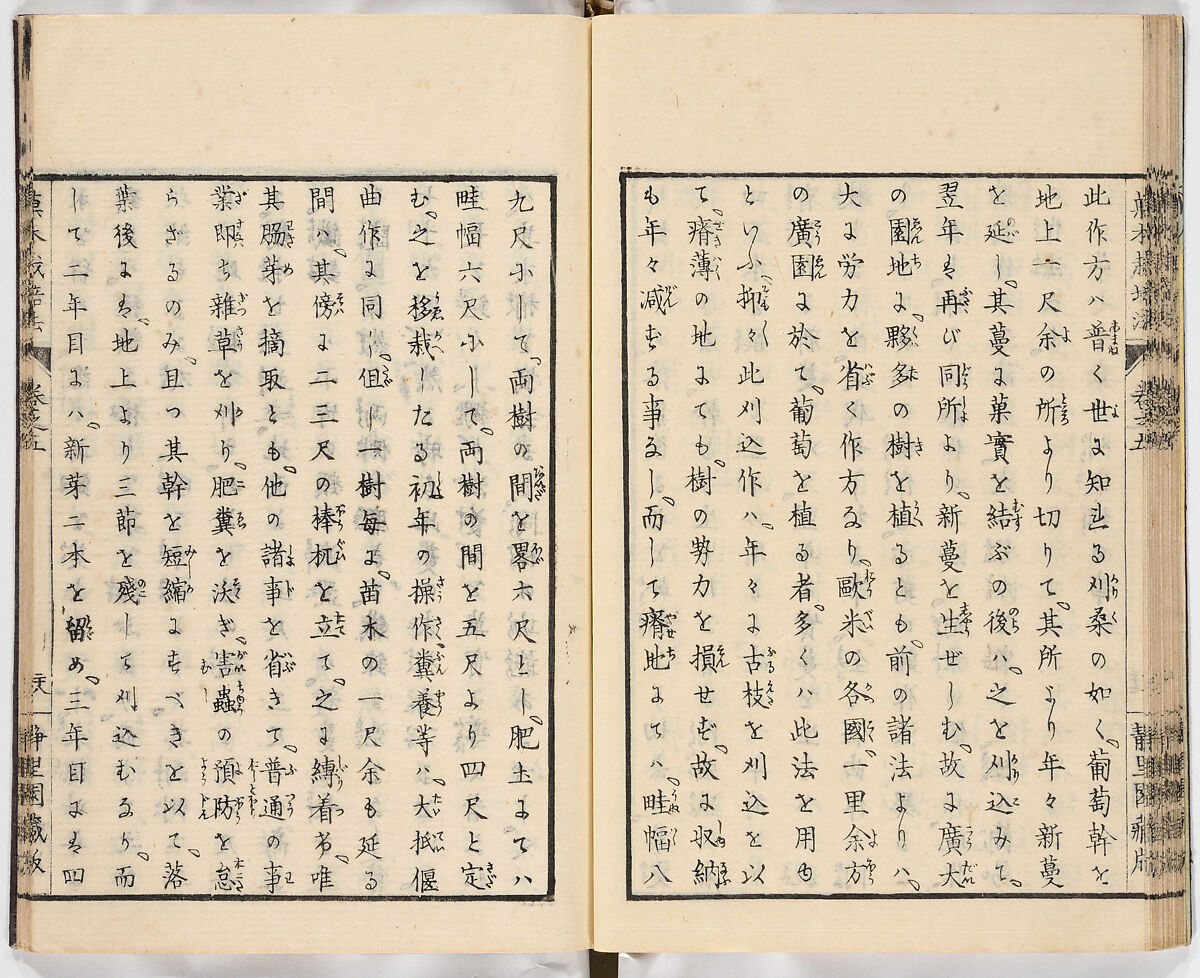 此作方ハ普く世に知れる刈桑の如く、葡萄幹を
地上一尺余の所より切りて、其所より年々新蔓
を延し、其蔓に菓實を結ぶの後ハ、之を刈込みて、
翌年は再び同所より、新蔓を生ぜしむ、故に廣大
の園地に、夥多の樹を植るとも、前の諸法よりハ、
大に労力を省く作方なり、歐米の各國、一里余方
の廣園に於て、葡萄を植る者、多くハ此法を用ゆ
といふ、抑々此刈込作ハ、年々に古枝を刈込を以
て、瘠薄の地にても、樹の勢力を損せず、故に収納
も年々減ずる事なし、而して瘠地にてハ、畦幅八
九尺にして、両樹の間を畧六尺とし、肥土にてハ
畦幅六尺にして、両樹の間を五尺より四尺と定
む、之を移栽したる初年の操作、糞養等ハ、大抵偃
曲作に同じ、但し一樹毎に、苗木の一尺余も延る
間ハ、其傍に二三尺の棒杭を立て、之に縛着け、唯
其脇芽を摘取とも、他の諸事を省きて、普通の事
業即ち雑草を刈り、肥糞を沃ぎ、害蟲の預防を怠
らざるのみ、且つ其幹を短縮にすべきを以て、落
葉後には、地上より三節を残して刈込むなり、而
して二年目にハ、新芽二本を留め、三年目には四
菓木栽培法
巻之五
静里園蔵版
菓木栽培法
巻之五
静里園蔵版